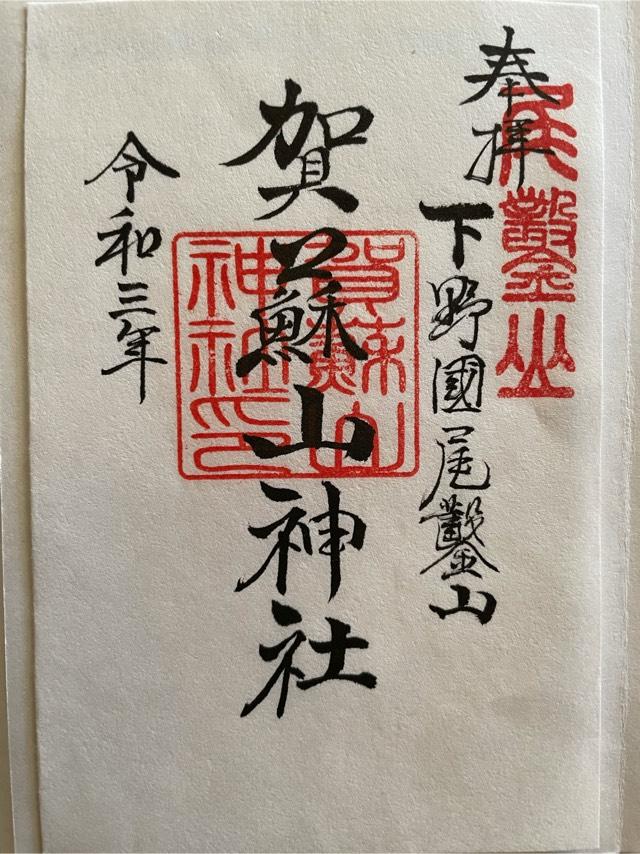 奉拝
尾鑿山
下野國尾鑿山
賀蘇山神社
賀蘇山神社印
令和三年